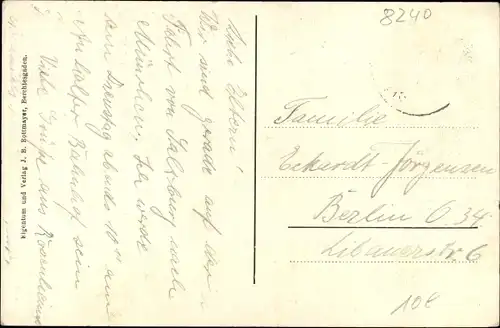 8240
Liebe Eltern!
Wir sind gerade auf der
Fahrt von Salzburg nach
München. Ich werde
am Dienstag abends 10
Anhalter Bahnhof sein
Viele Grüße aus Rosenheim
Eigentum und Verlag J. B. Rottmayer, Berchtesgaden.
Familie
Eckardt-Jörgensen
Berlin O. 34
Libauerstr. 6
10€